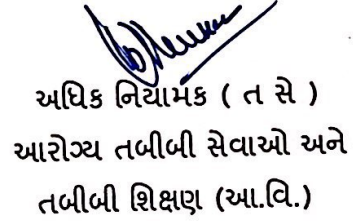 અધિક નિયામક ( ત સે )
આરોગ્ય તબીબી સેવાઓ અને
તબીબી શિક્ષણ (આ.વિ.)